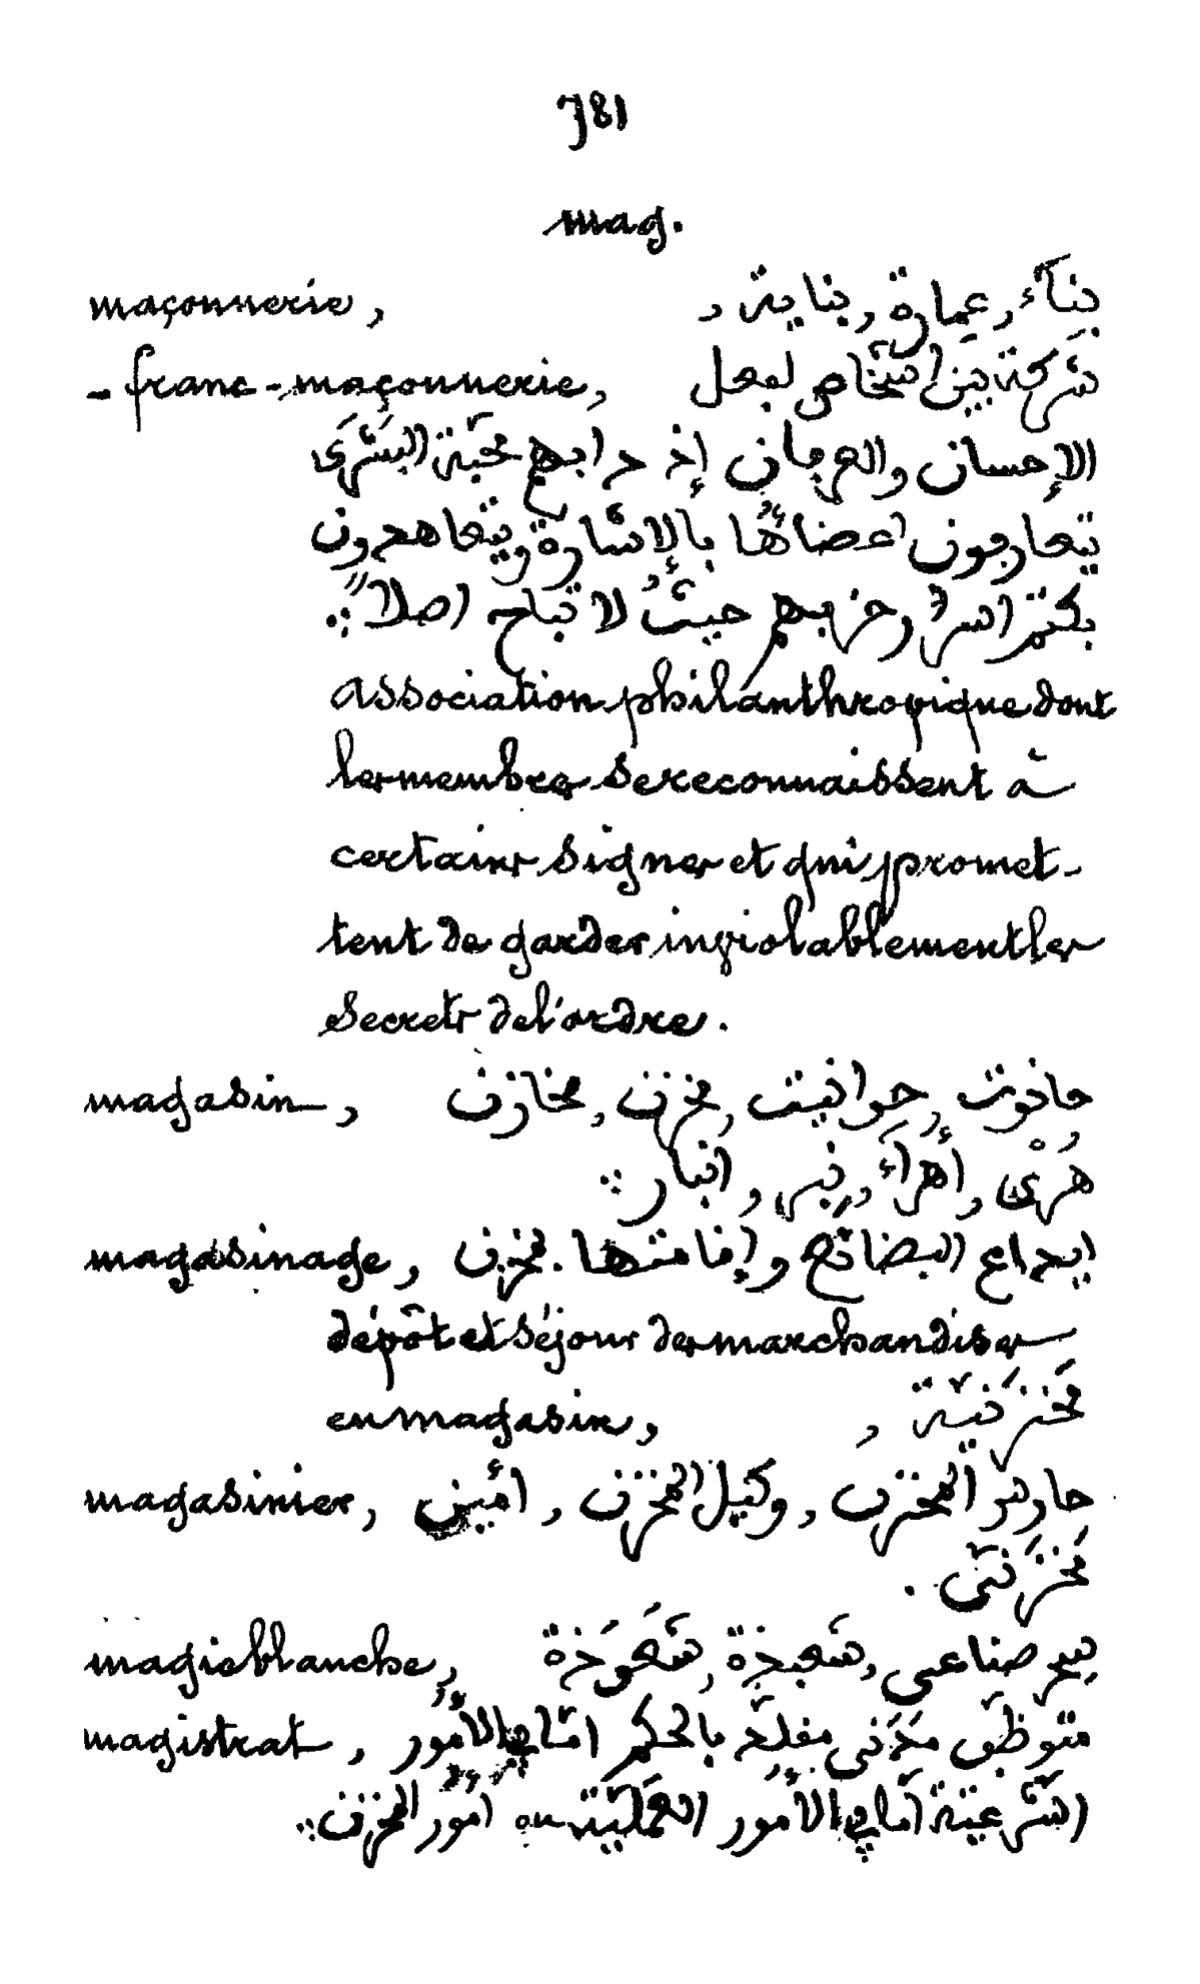 781
mag.
maçonnerie, بِنَآء, عِمارة, بناية,
- franc-maçonnerie, شركة بين اشخاص لفعل
الإحسان والعرفان إذ دابهم محبّة البَشَرَى
يتعارفون اعضاؤُها بالإشارة ويتعاهدون
بكتم اسرار حزبهم حيثُ لا تباح اصلاً
association philanthropique dont
les membres se reconnaissent à
certains signes et qui promet-
tent de garder inviolablement les
secrets de l'ordre.
magasin, حانوت, حوانيت, مخزن, مخازن
هُرْى, أَهْرآء, نبر, انبار
magasinage, ايداع البضائع وإقامتها بمخزن
dépôt et séjour des marchandises
en magasin, مَخْزَنيّة,
magasinier, حارس المخزن, وكيل المخزن, أمين
مَخزَنى.
magie blanche, سِحر صناعى, شعبذة, شَعْوَذة
magistrat, متوظّف مَدَنى مقلّد بالحكم امّا فى الأمُور
الشرعيّة امّا فى الأمور العَمَليّة ou امُور المخزن